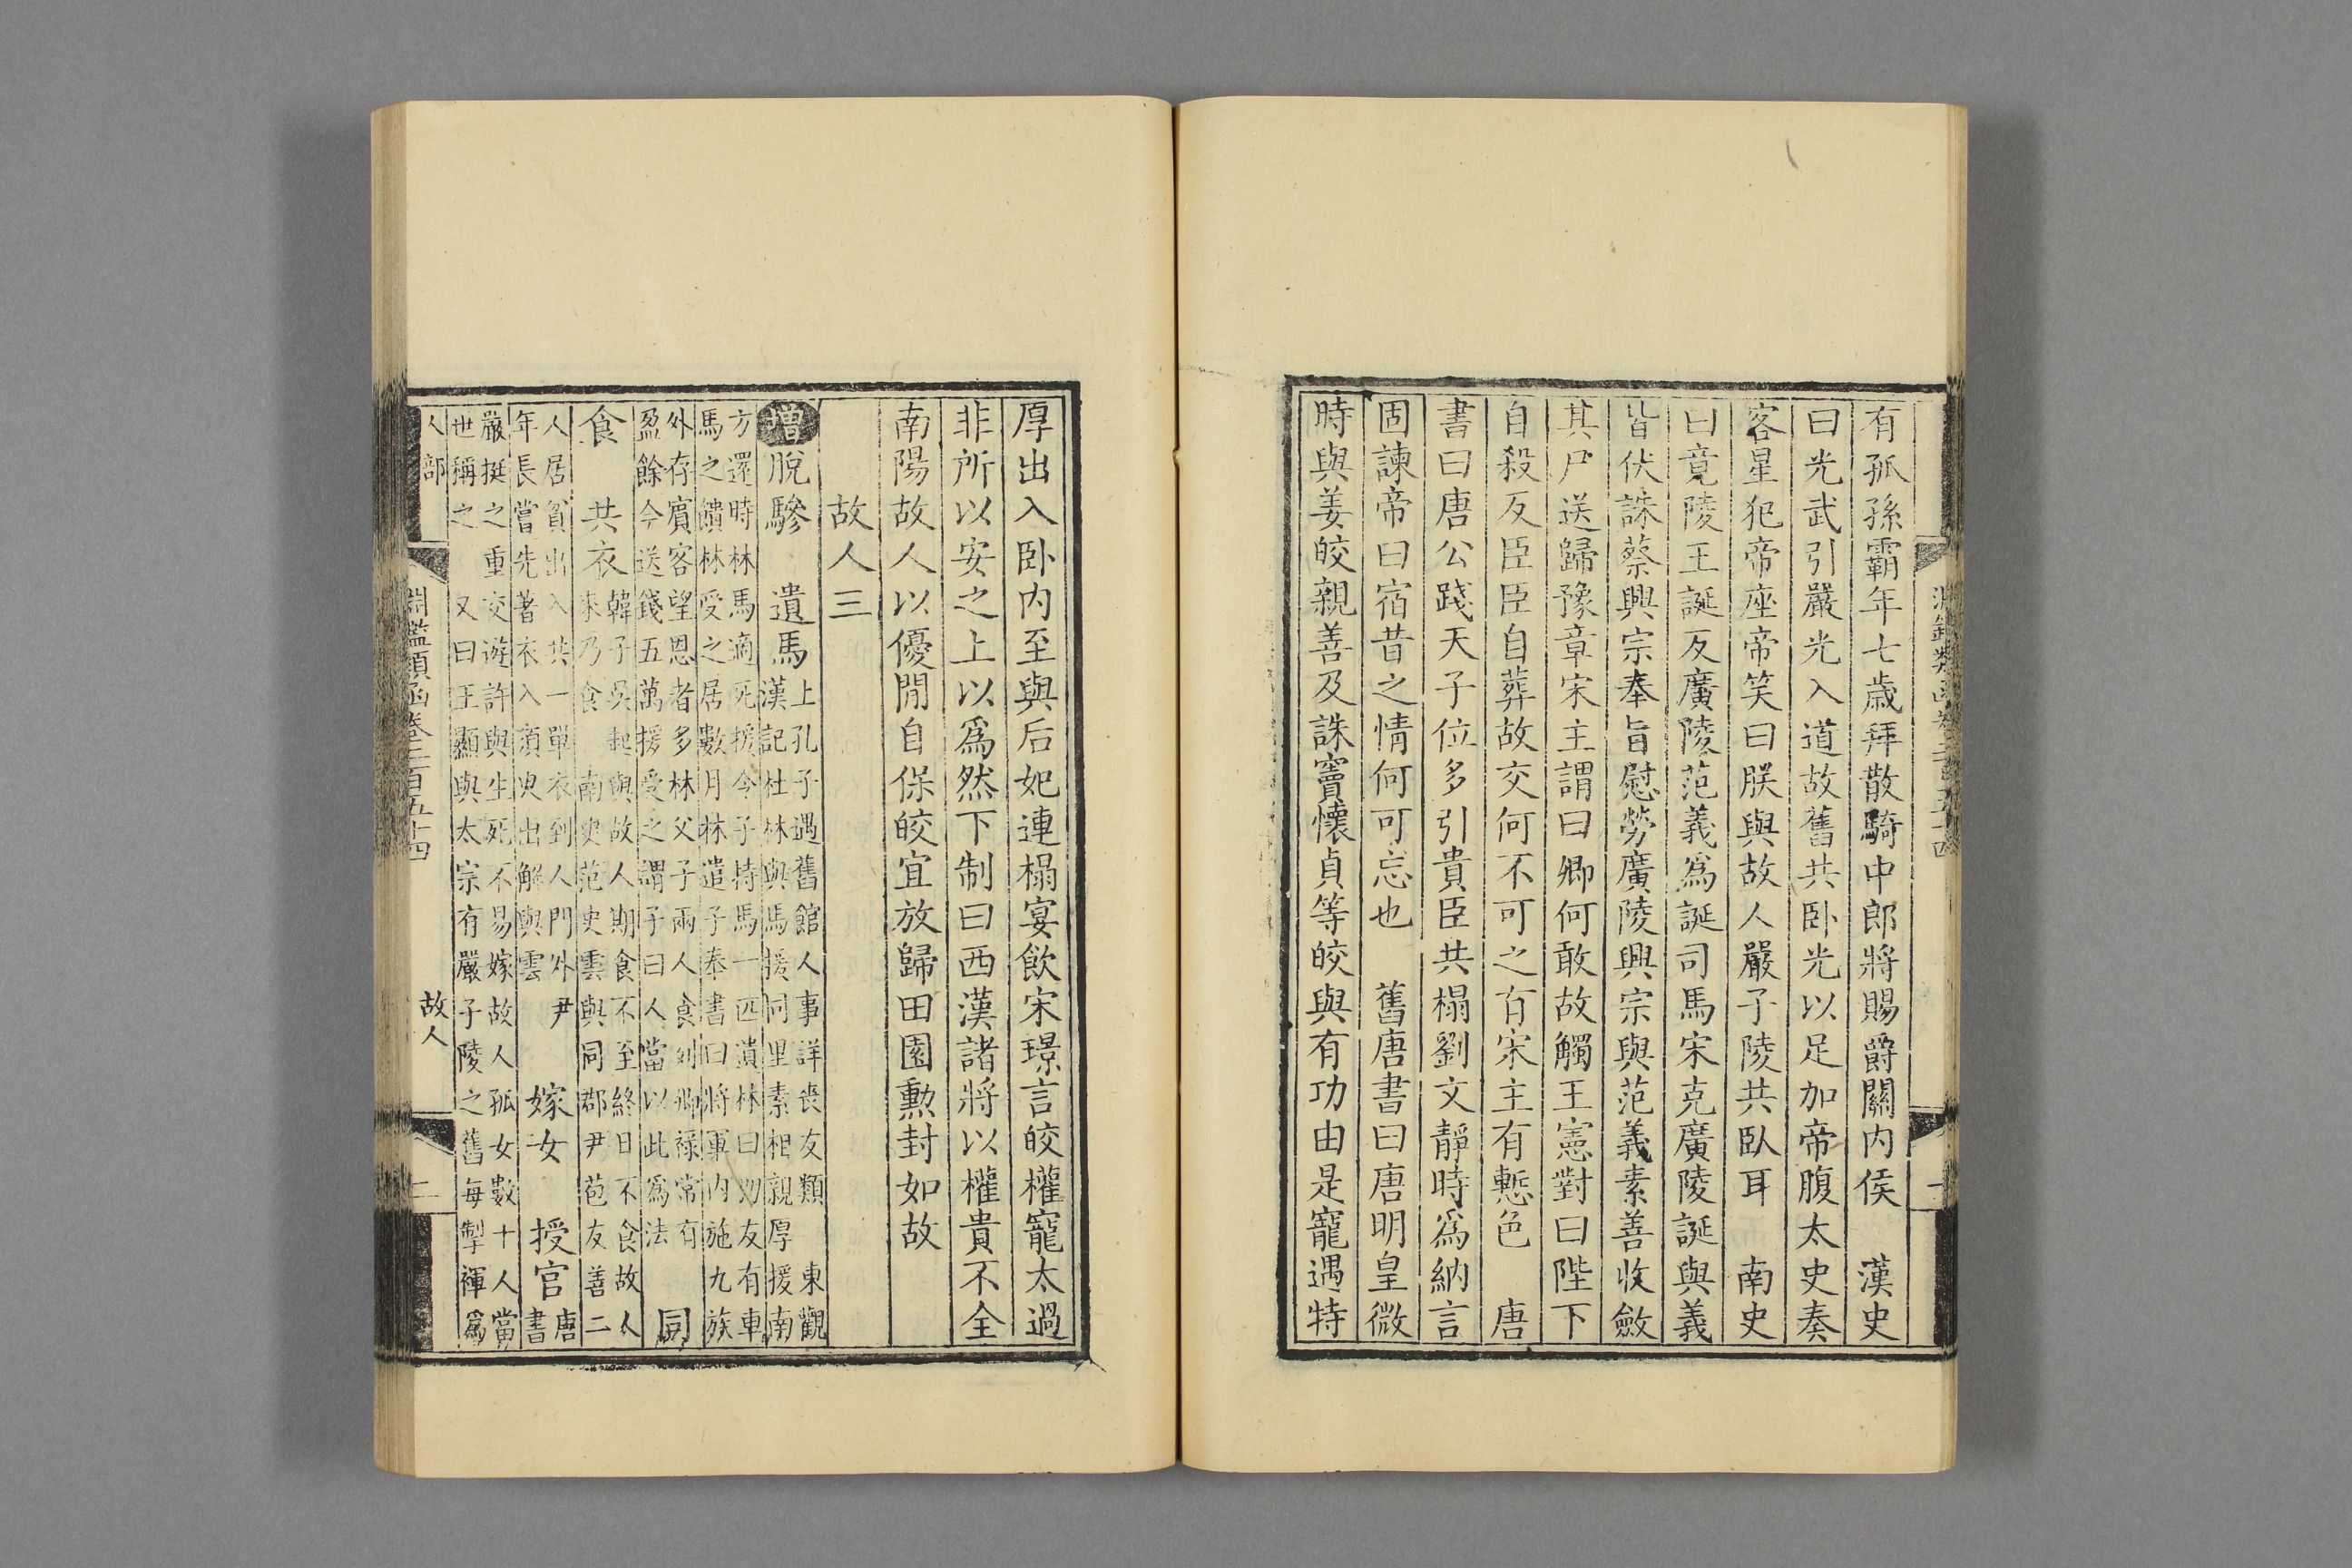 有孤孫霸年七歳拜散騎中郎將賜爵關内侯 漢史
曰光武引嚴光入道故舊共卧光以足加帝腹太史奏
客星犯帝座帝笑曰朕與故人嚴子陵共臥耳 南史
曰竟陵王誕反廣陵范義爲誕司馬宋克廣陵誕與義
皆伏誅蔡興宗奉旨慰勞廣陵興宗與范義素善收斂
其尸送歸豫章宋主謂曰卿何敢故觸王憲對曰陛下
自殺反臣臣自葬故交何不可之有宋主有慙色 唐
書曰唐公踐天子位多引貴臣共榻劉文靜時爲納言
固諫帝曰宿昔之情何可忘也 舊唐書曰唐明皇微
時與姜皎親善及誅竇懷貞等皎與有功由是寵遇特
厚出入卧内至與后妃連榻宴飲宋璟言皎權寵太過
非所以安之上以爲然下制曰西漢諸將以權貴不全
南陽故人以優閒自保皎宜放歸田園勳封如故
故人三
增脫驂 遺馬
上孔子遇舊館人事詳喪友類 東觀
漢記杜林與馬援同里素相親厚援南
方還時林馬適死援令子持馬一匹遺林曰朋友有車
馬之饋林受之居數月林遣子奉書曰將軍内施九族
外存賓客望恩者多林父子兩人食列卿祿常有
盈餘今送錢五萬援受之謂子曰人當以此爲法
同
食 共衣
韓子吳起與故人期食不至終日不食故人
來乃食 南史范史雲與同郡尹苞友善二
人居貧出入共一單衣到人門外尹
年長嘗先著衣入須臾出解與雲
嫁女 授官
唐
書
嚴挺之重交遊許與生死不易嫁故人孤女數十人當
世稱之 又曰王顯與太宗有嚴子陵之舊每掣褌爲
人部
淵鑑類函卷二百五十四
故人
二